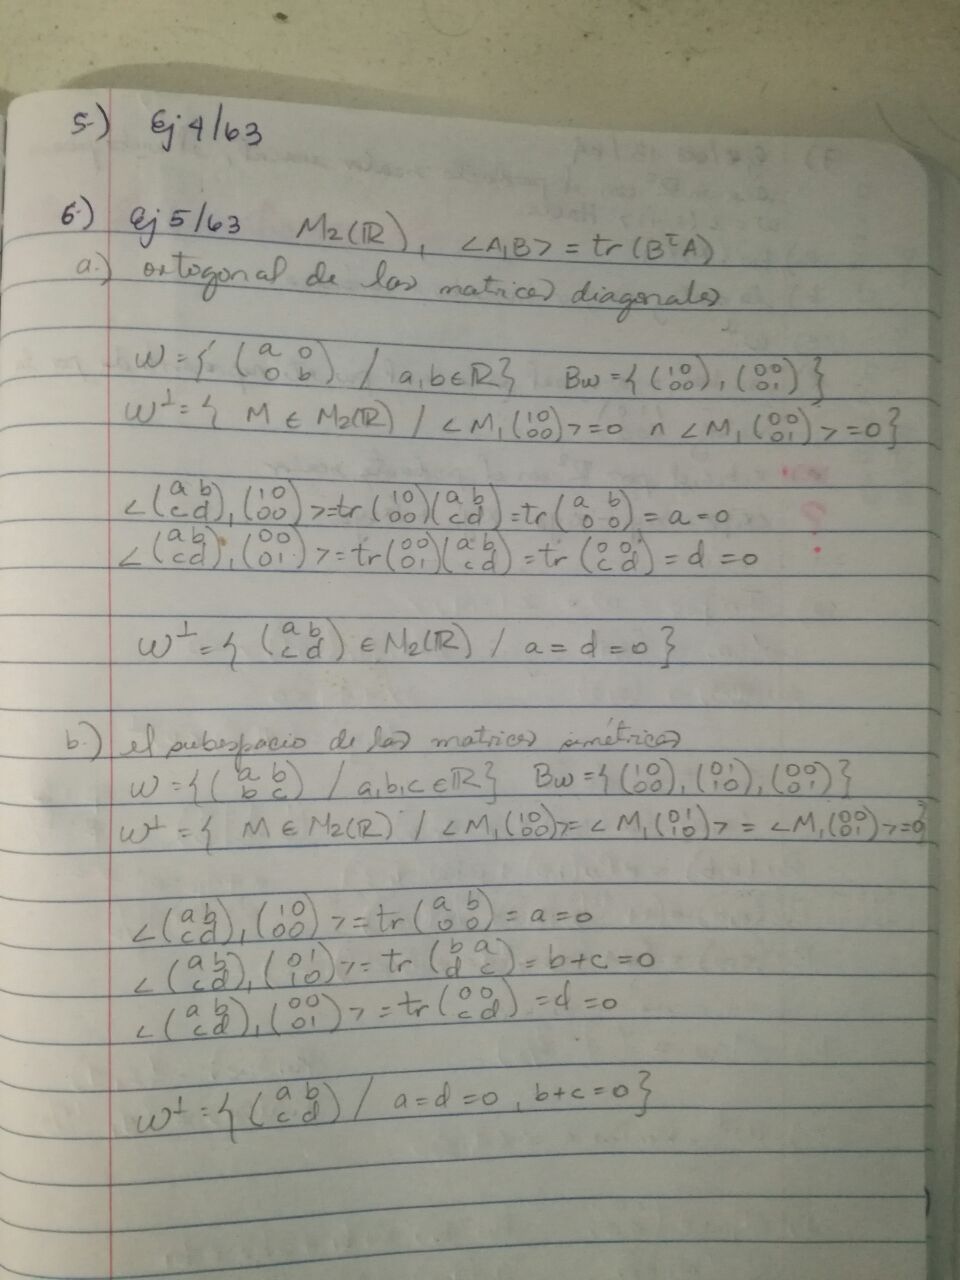 5-) Ej 4/63
6-) Ej 5/63 M₂(ℝ), <A,B> = tr(BᵗA)
a-) ortogonal de las matrices diagonales
W = { (a 0 / 0 b) / a,b ∈ ℝ} Bw = { (1 0 / 0 0), (0 0 / 0 1) }
W⊥ = { M ∈ M₂(ℝ) / <M, (1 0 / 0 0)> = 0 ∧ <M, (0 0 / 0 1)> = 0}
<(a b / c d), (1 0 / 0 0)> = tr (1 0 / 0 0)(a b / c d) = tr(a b / 0 0) = a = 0
<(a b / c d), (0 0 / 0 1)> = tr(0 0 / 0 1)(a b / c d) = tr (0 0 / c d) = d = 0
W⊥ = { (a b / c d) ∈ M₂(ℝ) / a = d = 0 }
b-) el subespacio de las matrices simétricas
W = { (a b / b c) / a,b,c ∈ ℝ} Bw = { (1 0 / 0 0), (0 1 / 1 0), (0 0 / 0 1) }
W⊥ = { M ∈ M₂(ℝ) / <M, (1 0 / 0 0)> = <M, (0 1 / 1 0)> = <M, (0 0 / 0 1)> = 0}
<(a b / c d), (1 0 / 0 0)> = tr (a b / 0 0) = a = 0
<(a b / c d), (0 1 / 1 0)> = tr (b a / d c) = b+c = 0
<(a b / c d), (0 0 / 0 1)> = tr (0 0 / c d) = d = 0
W⊥ = { (a b / c d) / a = d = 0, b+c = 0}